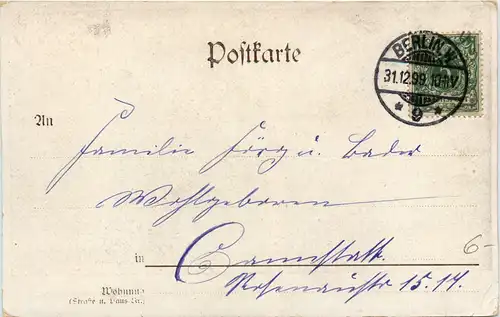 Postkarte
BERLIN, N.
31.12.99. 10-11V
* 9 *
An
Familie Jörg u. Bader
Wohlgeboren
in Cannstatt.
Wohnung
(Straße u. Haus-Nr.)
15.17.
6-